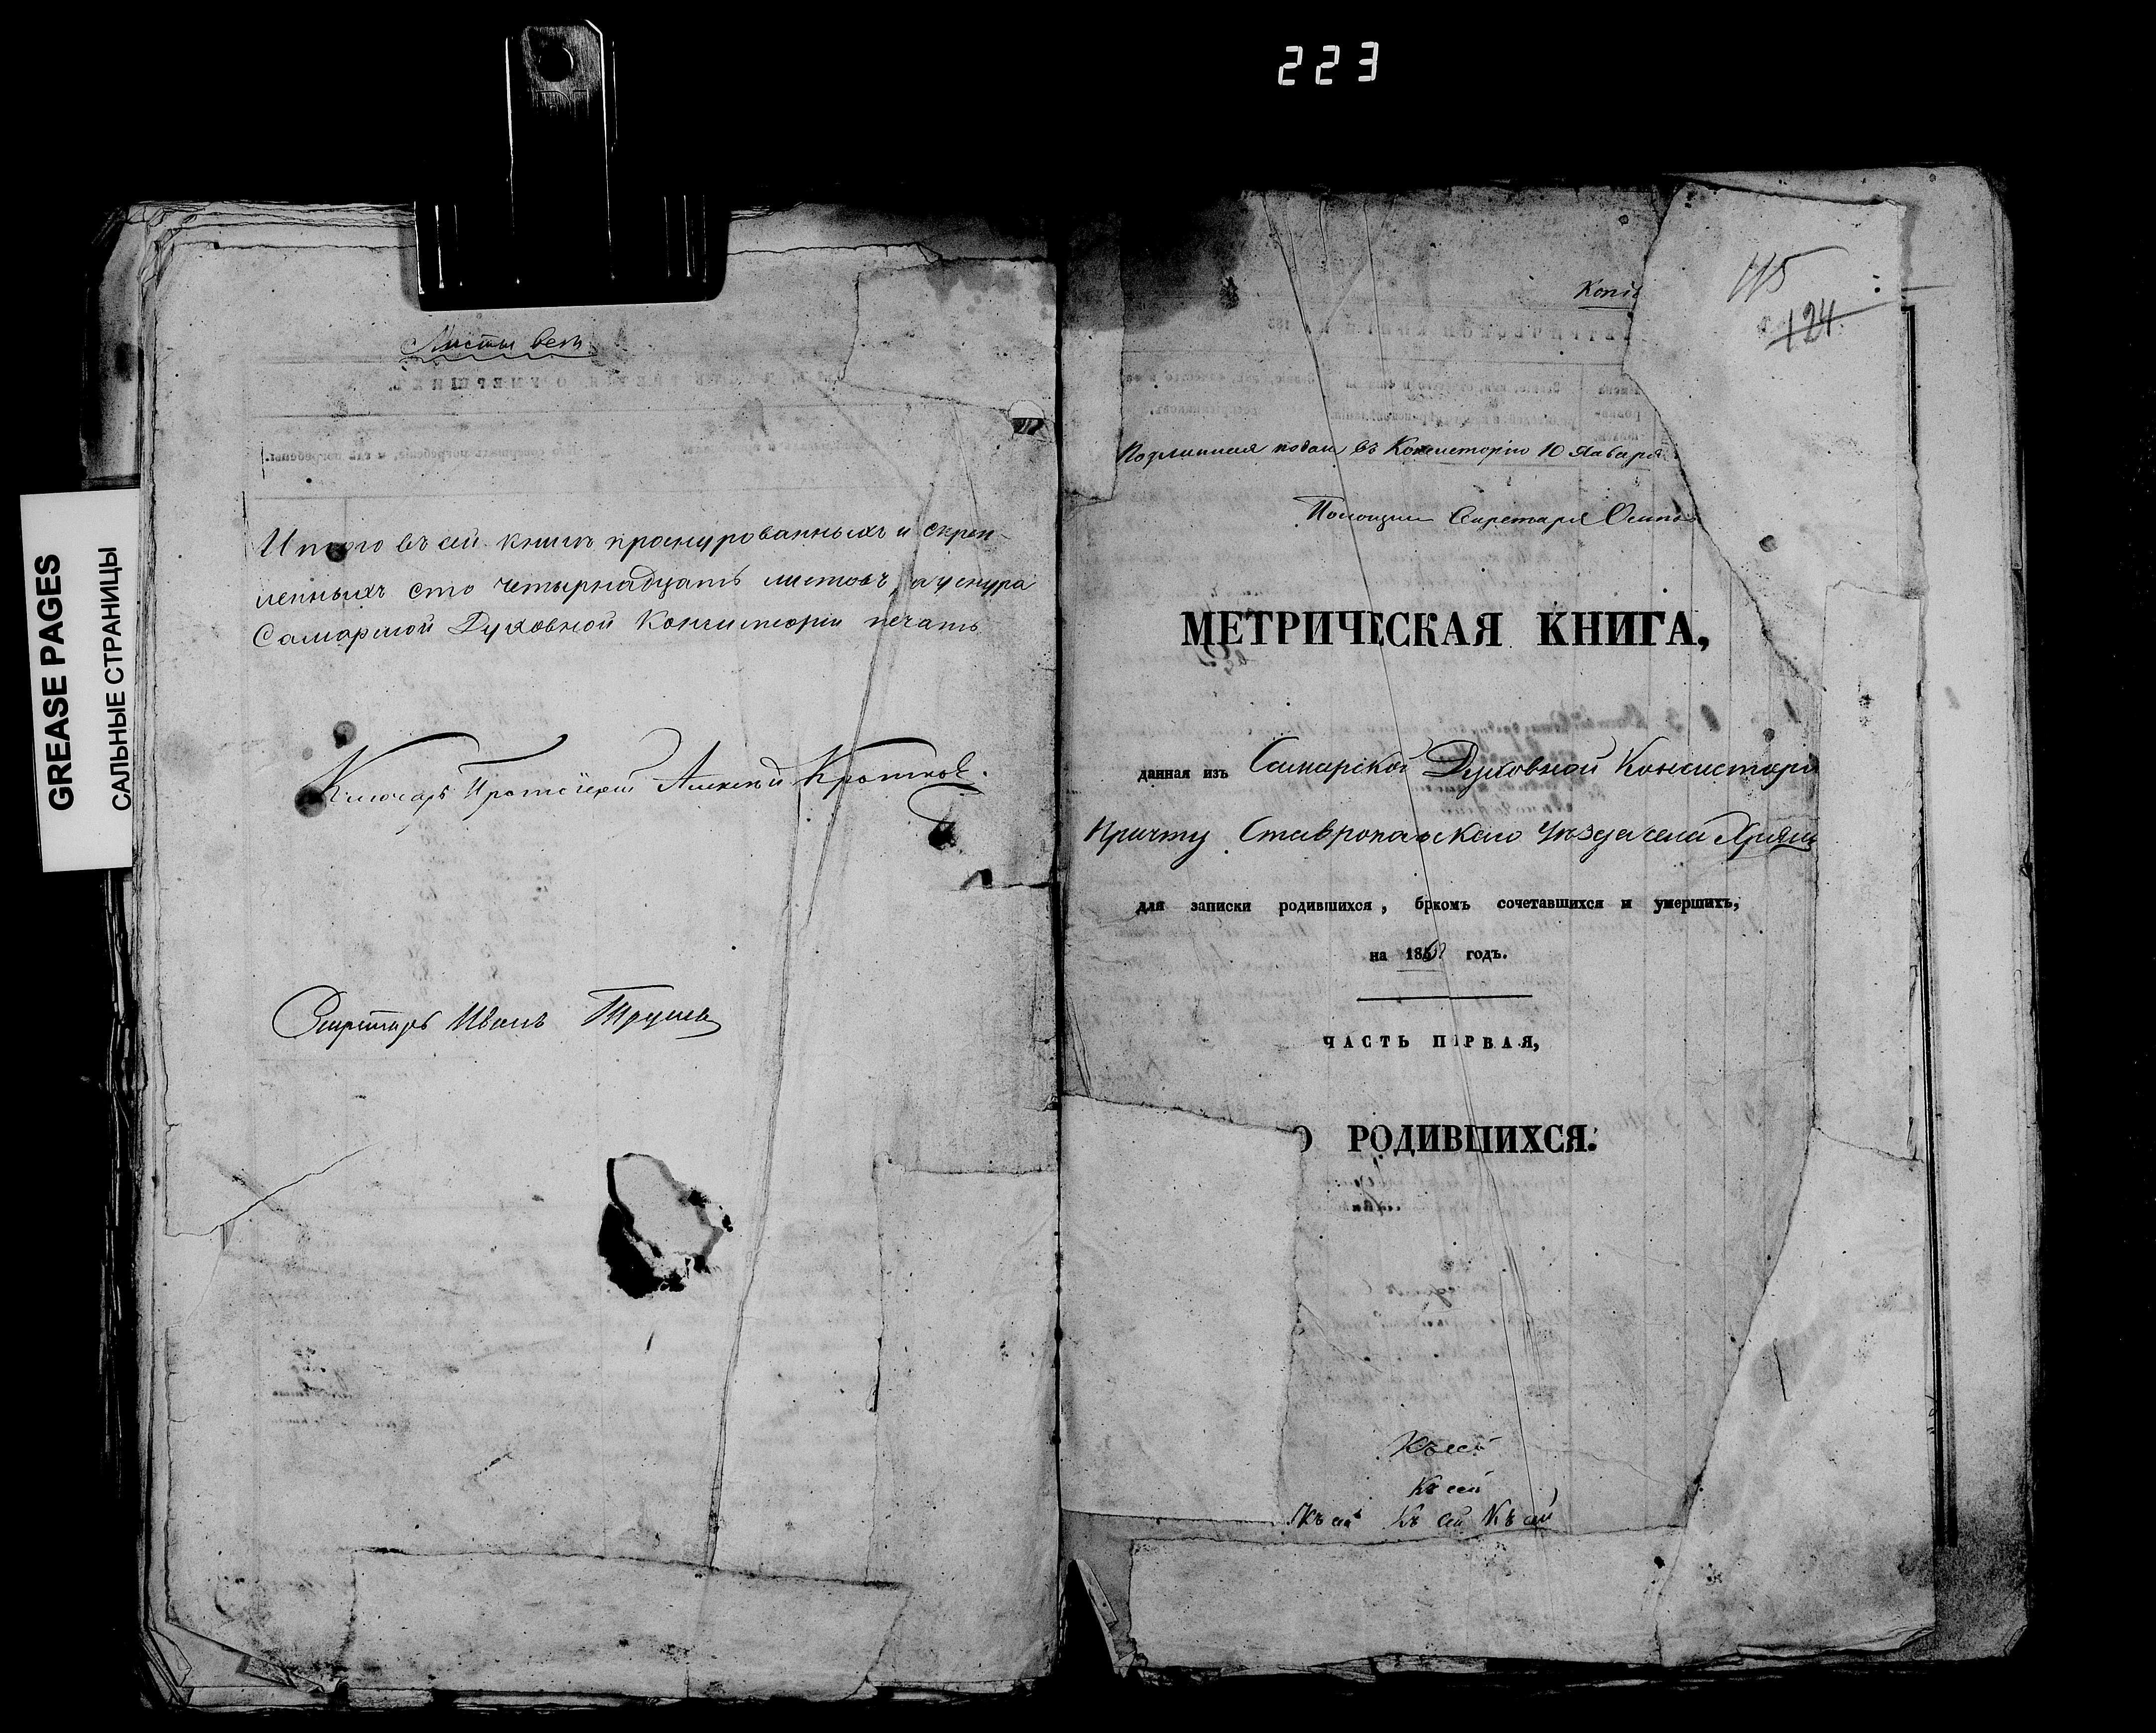 223
GREASE PAGES
САЛЬНЫЕ СТРАНИЦЫ
Листы
Итого въ сей книгѣ прошнурованныхъ и скрѣп-
ленныхъ сто четырнадцать листовъ, а у шнура
Самарской Духовной Консисторіи печать
Ключарь Протоіерей Алексѣй Кротковъ.
Секретарь Иванъ
115
124
Копі
Подлинная подан въ Консисторію 10 Января
Помощни Секретаря Осипов
МЕТРИЧЕСКАЯ КНИГА,
данная изъ Самарской Духовной Консистори
Причту Ставропольскаго Уѣзда села Хрящ
для записки родившихся, бркомъ сочетавшихся и умершихъ,
на годъ.
ЧАСТЬ ПЕРВАЯ,
О РОДИВШИХСЯ.
Къ сей
Къ сей
Къ сей Къ сей Къ сей